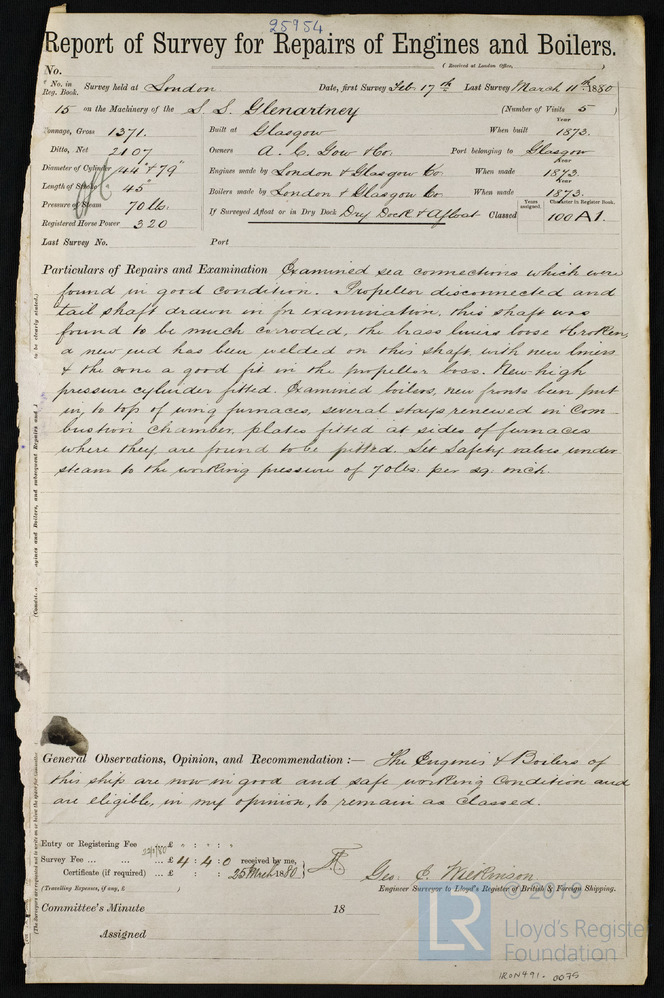 25954
Report of Survey for Repairs of Engines and Boilers.
No. (Received at London Office, )
No. in Reg. Book. Survey held at London Date, first Survey Feb. 17th Last Survey March 11th 1880
15 on the Machinery of the S. S. Glenartney (Number of Visits 5 )
Tonnage, Gross 1371. Built at Glasgow When built Year 1873.
Ditto, Net 2107 Owners A. C. Gow & Co. Port belonging to Glasgow
Diameter of Cylinder 44" & 79" Engines made by London & Glasgow Co When made Year 1873
Length of Stroke 45" Boilers made by London & Glasgow Co. When made Year 1873.
Pressure of Steam 70 lb. If Surveyed Afloat or in Dry Dock Dry Dock & Afloat Classed Years assigned. Character in Register Book. 100 A1.
Registered Horse Power 320
Last Survey No. Port
Particulars of Repairs and Examination Examined sea connections which were
found in good condition. Propellor disconnected and
tail shaft drawn in for examination, this shaft was
found to be much corroded, the brass liners loose & broken,
a new end has been welded on this shaft, with new liners
& the cone a good fit in the propellor boss. New high
pressure cylinder fitted. Examined boilers, new fronts been put
in, to top of wing furnaces, several stays renewed in Com-
bustion chamber, plates fitted at sides of furnaces
where they are found to be pitted. Set Safety valves under
steam to the working pressure of 70lbs. per sq. inch.
General Observations, Opinion, and Recommendation :— The Engines & Boilers of
this ship are now in good and safe working Condition and
are eligible, in my opinion, to remain as classed.
Entry or Registering Fee £ " : " : "
Survey Fee ... ... ... £ 4 : 4 : 0 received by me,
Certificate (if required) ... £ : : 25 March 1880
(Travelling Expenses, if any, £ )
Geo: E. Wilkinson
Engineer Surveyor to Lloyd's Register of British & Foreign Shipping.
Committee's Minute 18
Assigned
© 2019
LR Lloyd's Register
Foundation
IRON491-0075